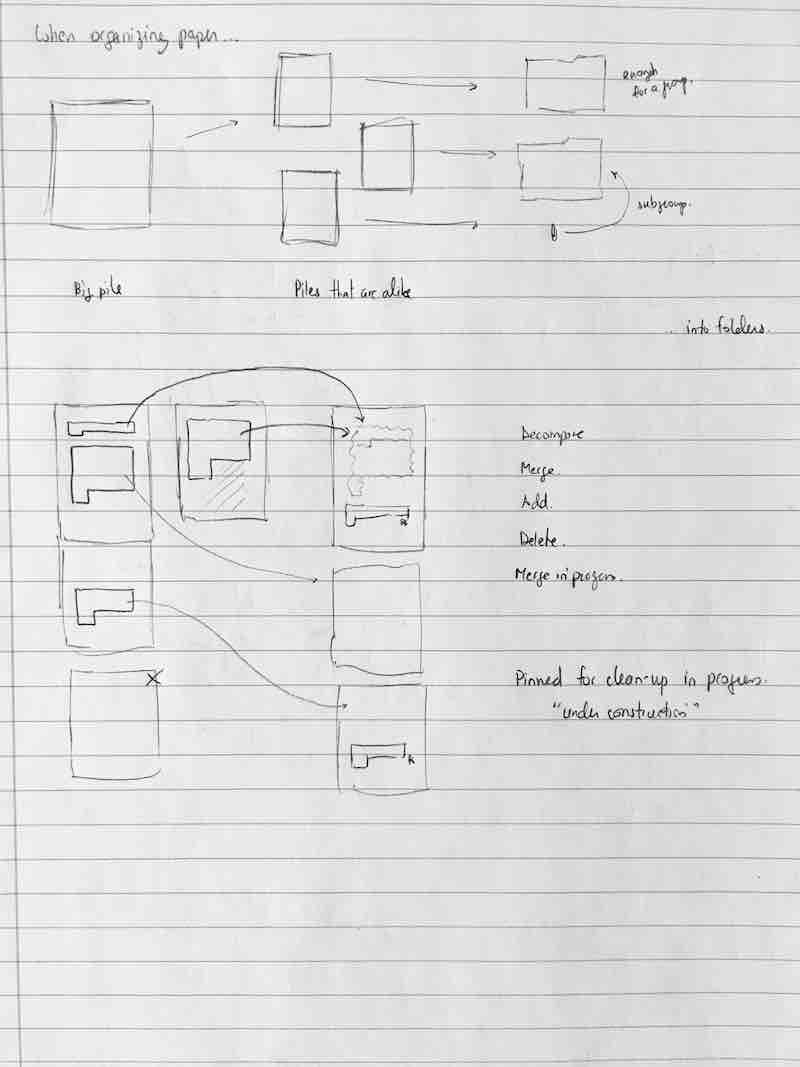 When organizing paper...
enough
for a group.
subgroup.
Big pile
Piles that are alike
... into folders.
Decompose
Merge.
Add.
Delete.
Merge in progress.
Pinned for clean-up in progress.
"under construction"